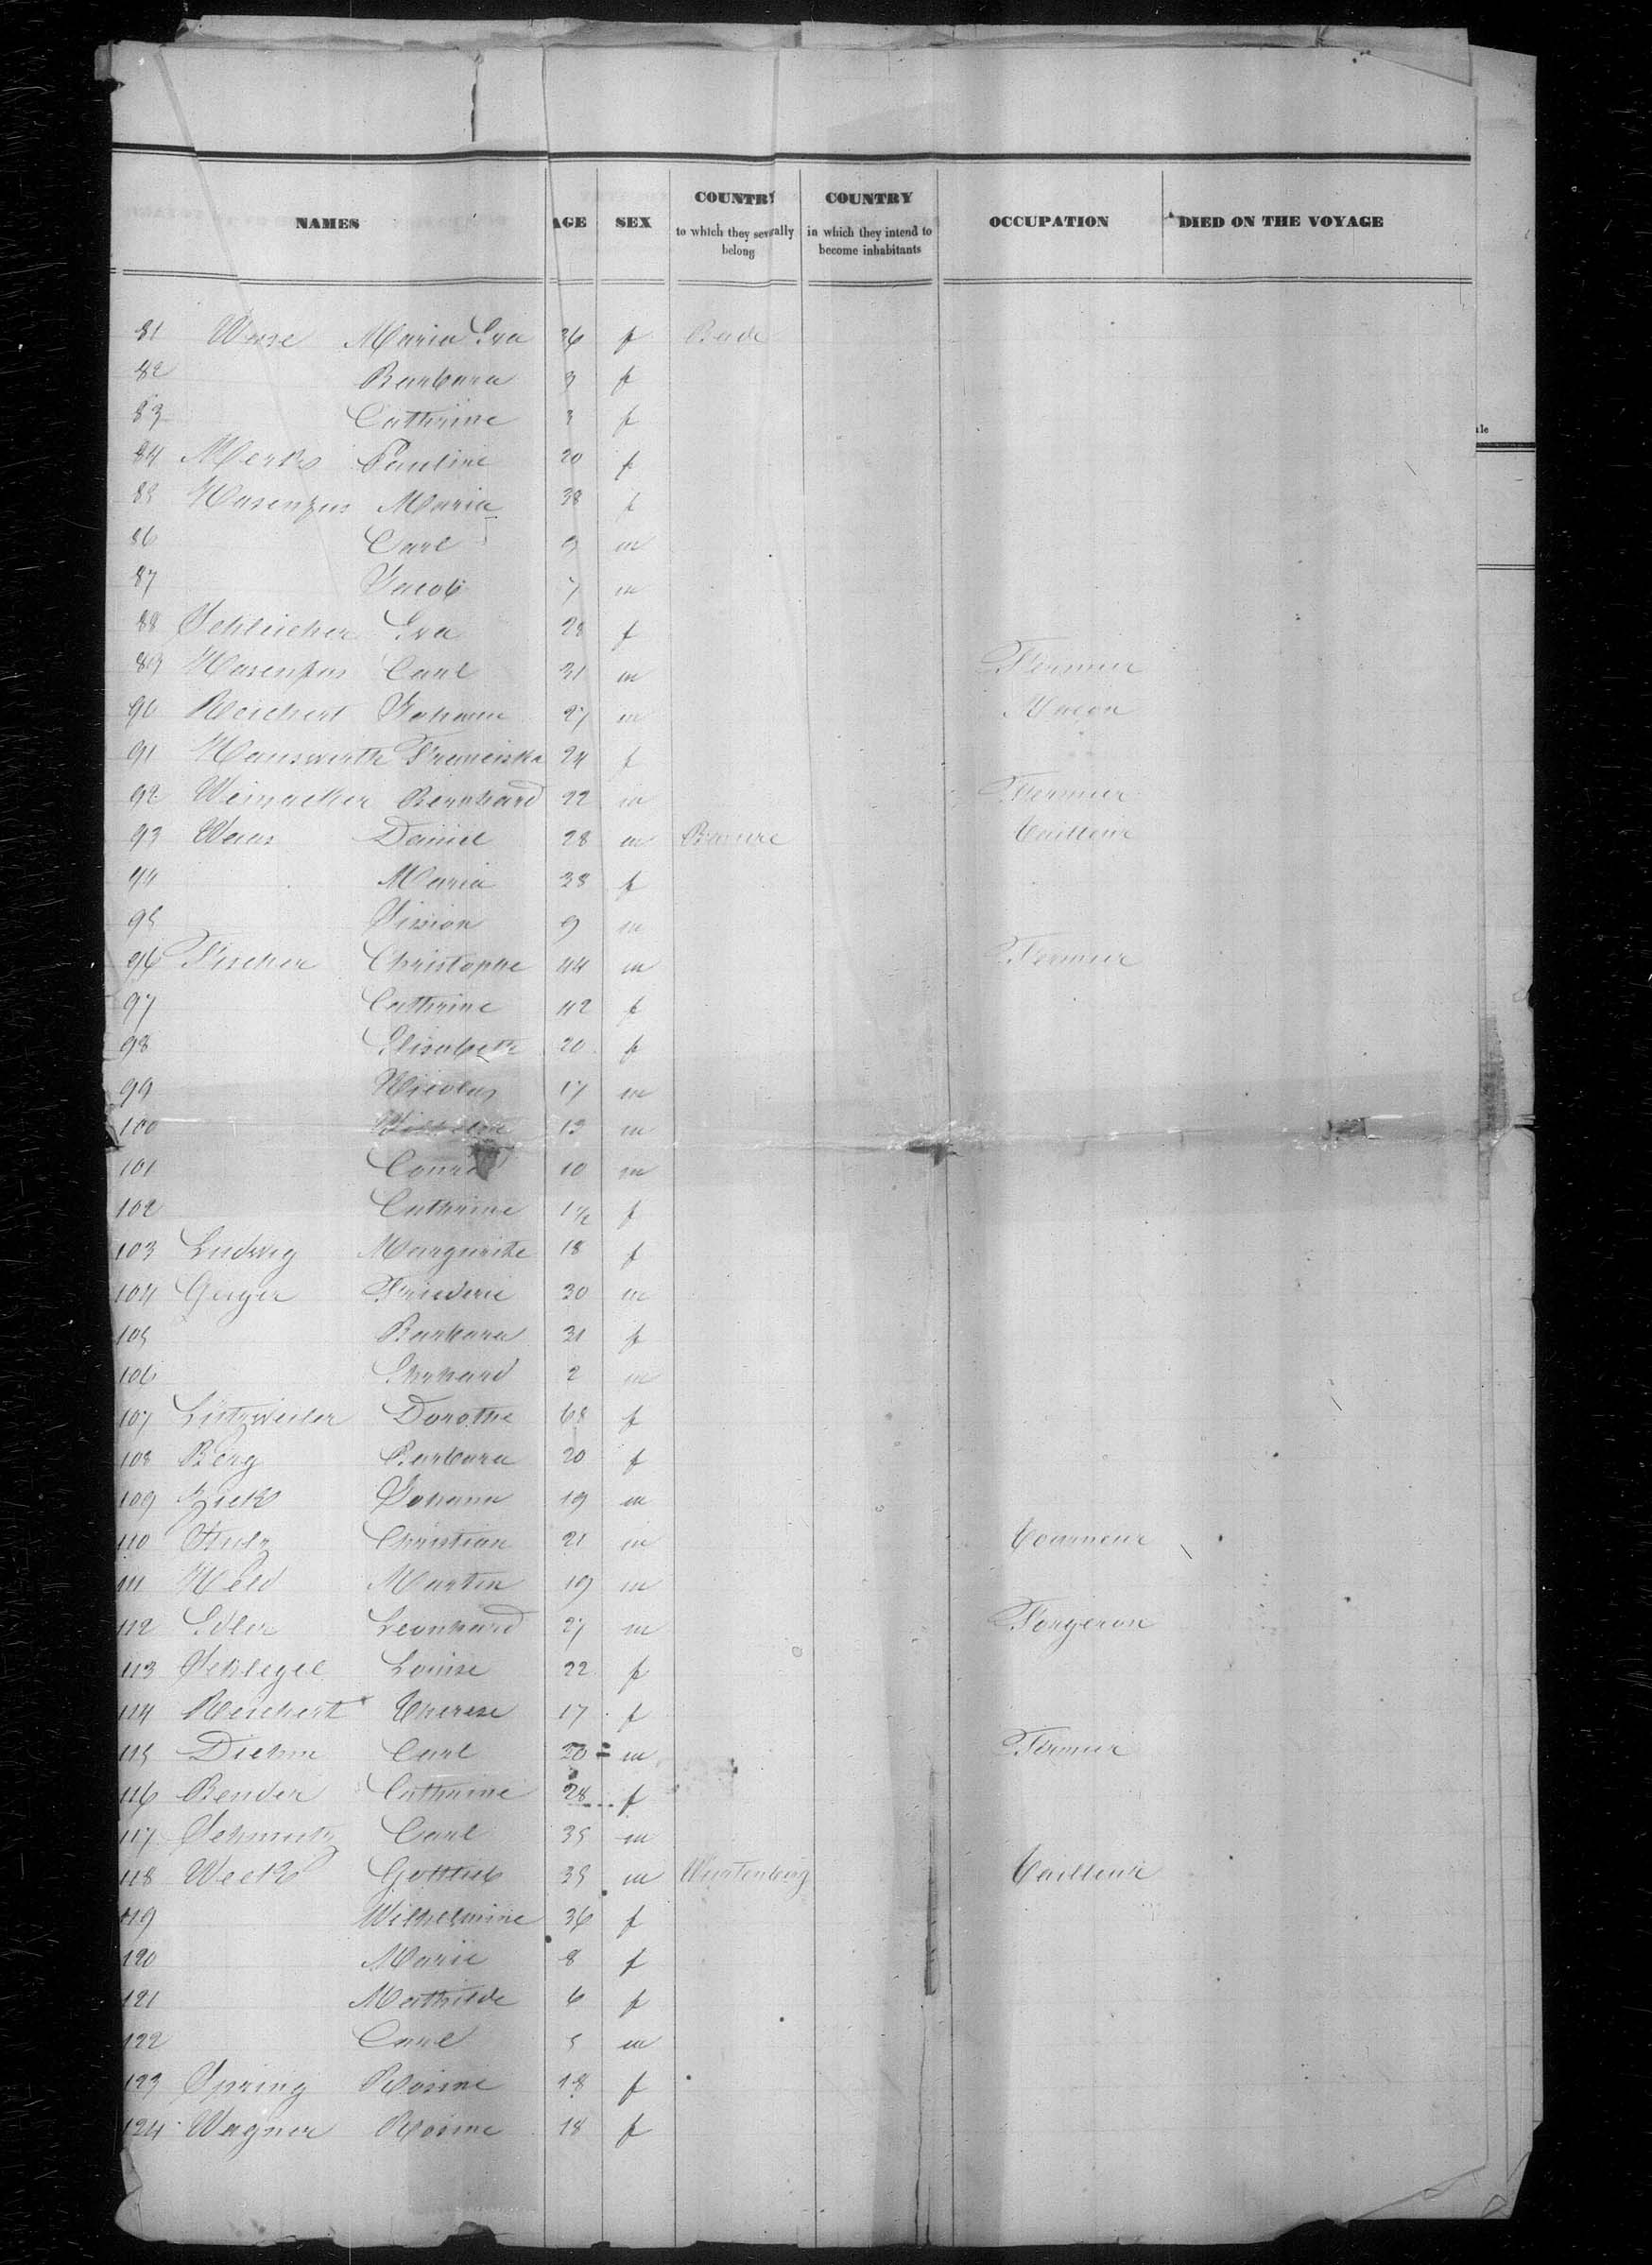 NAMES AGE SEX COUNTRY to which they severally belong COUNTRY in which they intend to become inhabitants OCCUPATION DIED ON THE VOYAGE
ale
81 Maria Eva 36 f Bade
82 Barbara 3 f
83 Cathrine 3 f
84 Merk Pauline 20 f
85 Hasenfus Maria 38 f
86 Carl 9 m
87 Jacob 7 m
88 Schleicher Eva 28 f
89 Hasenfus Carl 31 m Fermier
90 Reichert Johann 27 m Macon
91 Hauswirth Franciska 24 f
92 Weinacker Bernhard 22 m Fermier
93 Waas Daniel 28 m Baviere Tailleur
94 Maria 38 f
95 Simon 9 m
96 Fischer Christophe 44 m Fermier
97 Cathrine 42 f
98 Elisabeth 20 f
99 Nicolas 17 m
100 Wilhelm 13 m
101 Conrad 10 m
102 Cathrine 1 1/2 f
103 Ludwig Margarithe 18 f
104 Geiger Friederic 30 m
105 Barbara 31 f
106 Ehrhard 2 m
107 Dorothe 68 f
108 Berg Barbara 20 f
109 Zick Johann 19 m
110 Christian 21 m Tourneur
111 Held Martin 19 m
112 Edler Leonhard 27 m Forgeron
113 Schlegel Louise 22 f
114 Reichert Therese 17 f
115 Diehm Carl 20 m Fermier
116 Bender Cathrine 28 f
117 Schmutz Carl 35 m
118 Week Gottlieb 35 m Wurtenberg Tailleur
119 Wilhelmine 36 f
120 Marie 8 f
121 Mathilde 6 f
122 Carl 5 m
123 Spring Rosine 18 f
124 Wagner Rosine 18 f